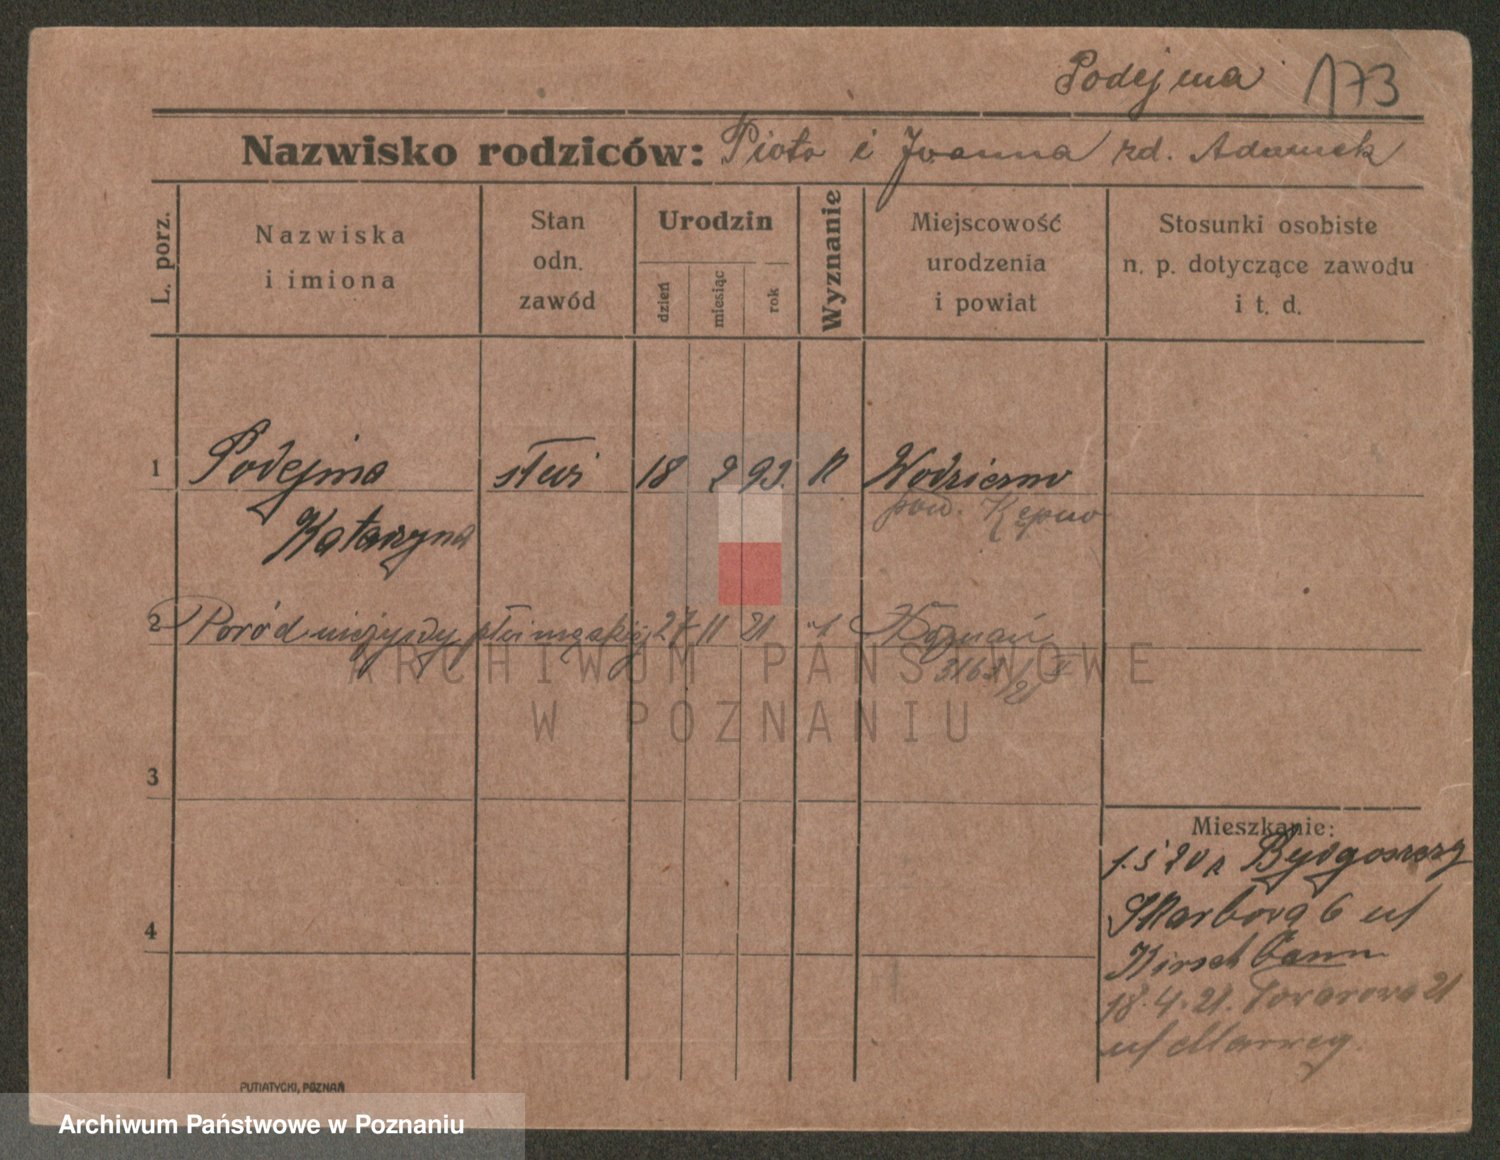 Podejma 173
Nazwisko rodziców: Piotr i Joanna rd. Adamek
L. porz.
Nazwiska
i imiona
Stan
odn.
zawód
Urodzin
dzień
miesiąc
rok
Wyznanie
Miejscowość
urodzenia
i powiat
Stosunki osobiste
n. p. dotyczące zawodu
i t. d.
1 Podejma 18 2 93.
Katarzyna
pow. Kępno
2 Poród nieżywy płci męskiej 27 11 21 Poznań
3163/21
3
4
Mieszkanie:
1. 5 20 z Bydgoszczy
Skarbowa 6 ul
18. 4. 21. Towarowa 21
ul
PUTIATYCKI, POZNAŃ
ARCHIWUM PAŃSTWOWE
W POZNANIU
Archiwum Państwowe w Poznaniu